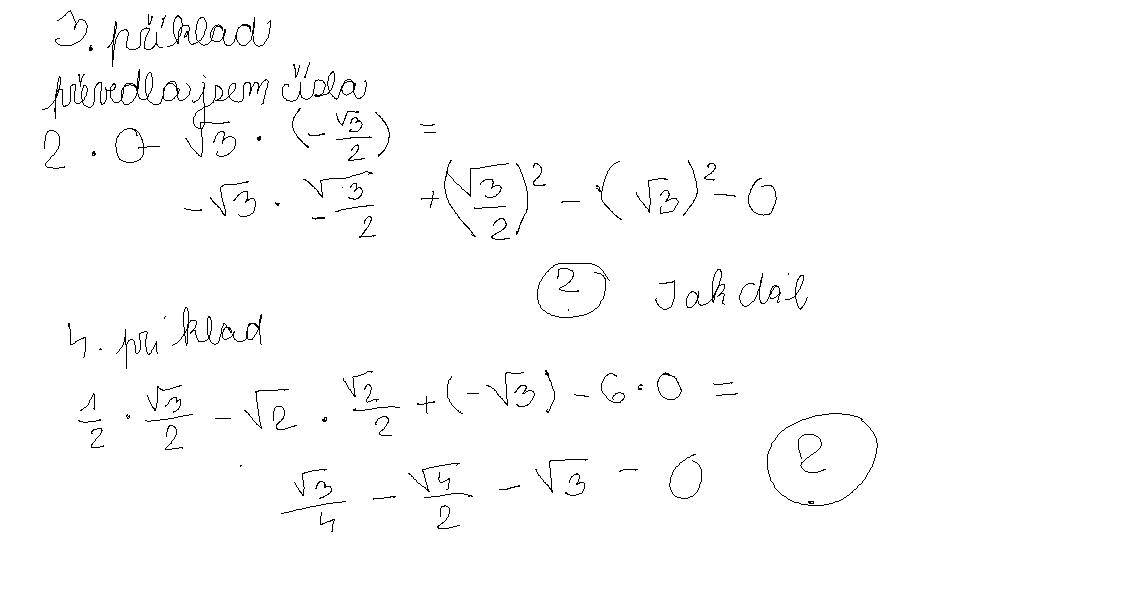 3. příklad
převedla jsem čísla
2 · 0 - √3 · (-√3/2) =
-√3 · -√3/2 + (√3/2)² - (√3)² - 0
? Jak dál
4. při klad
1/2 · √3/2 - √2 · √2/2 + (-√3) - 6 · 0 =
√3/4 - √4/2 - √3 - 0 ?